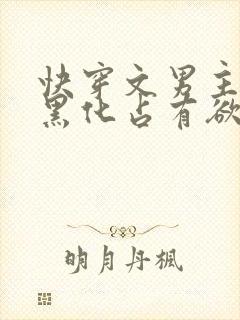 快穿文男主
黑化占有欲
明月丹枫